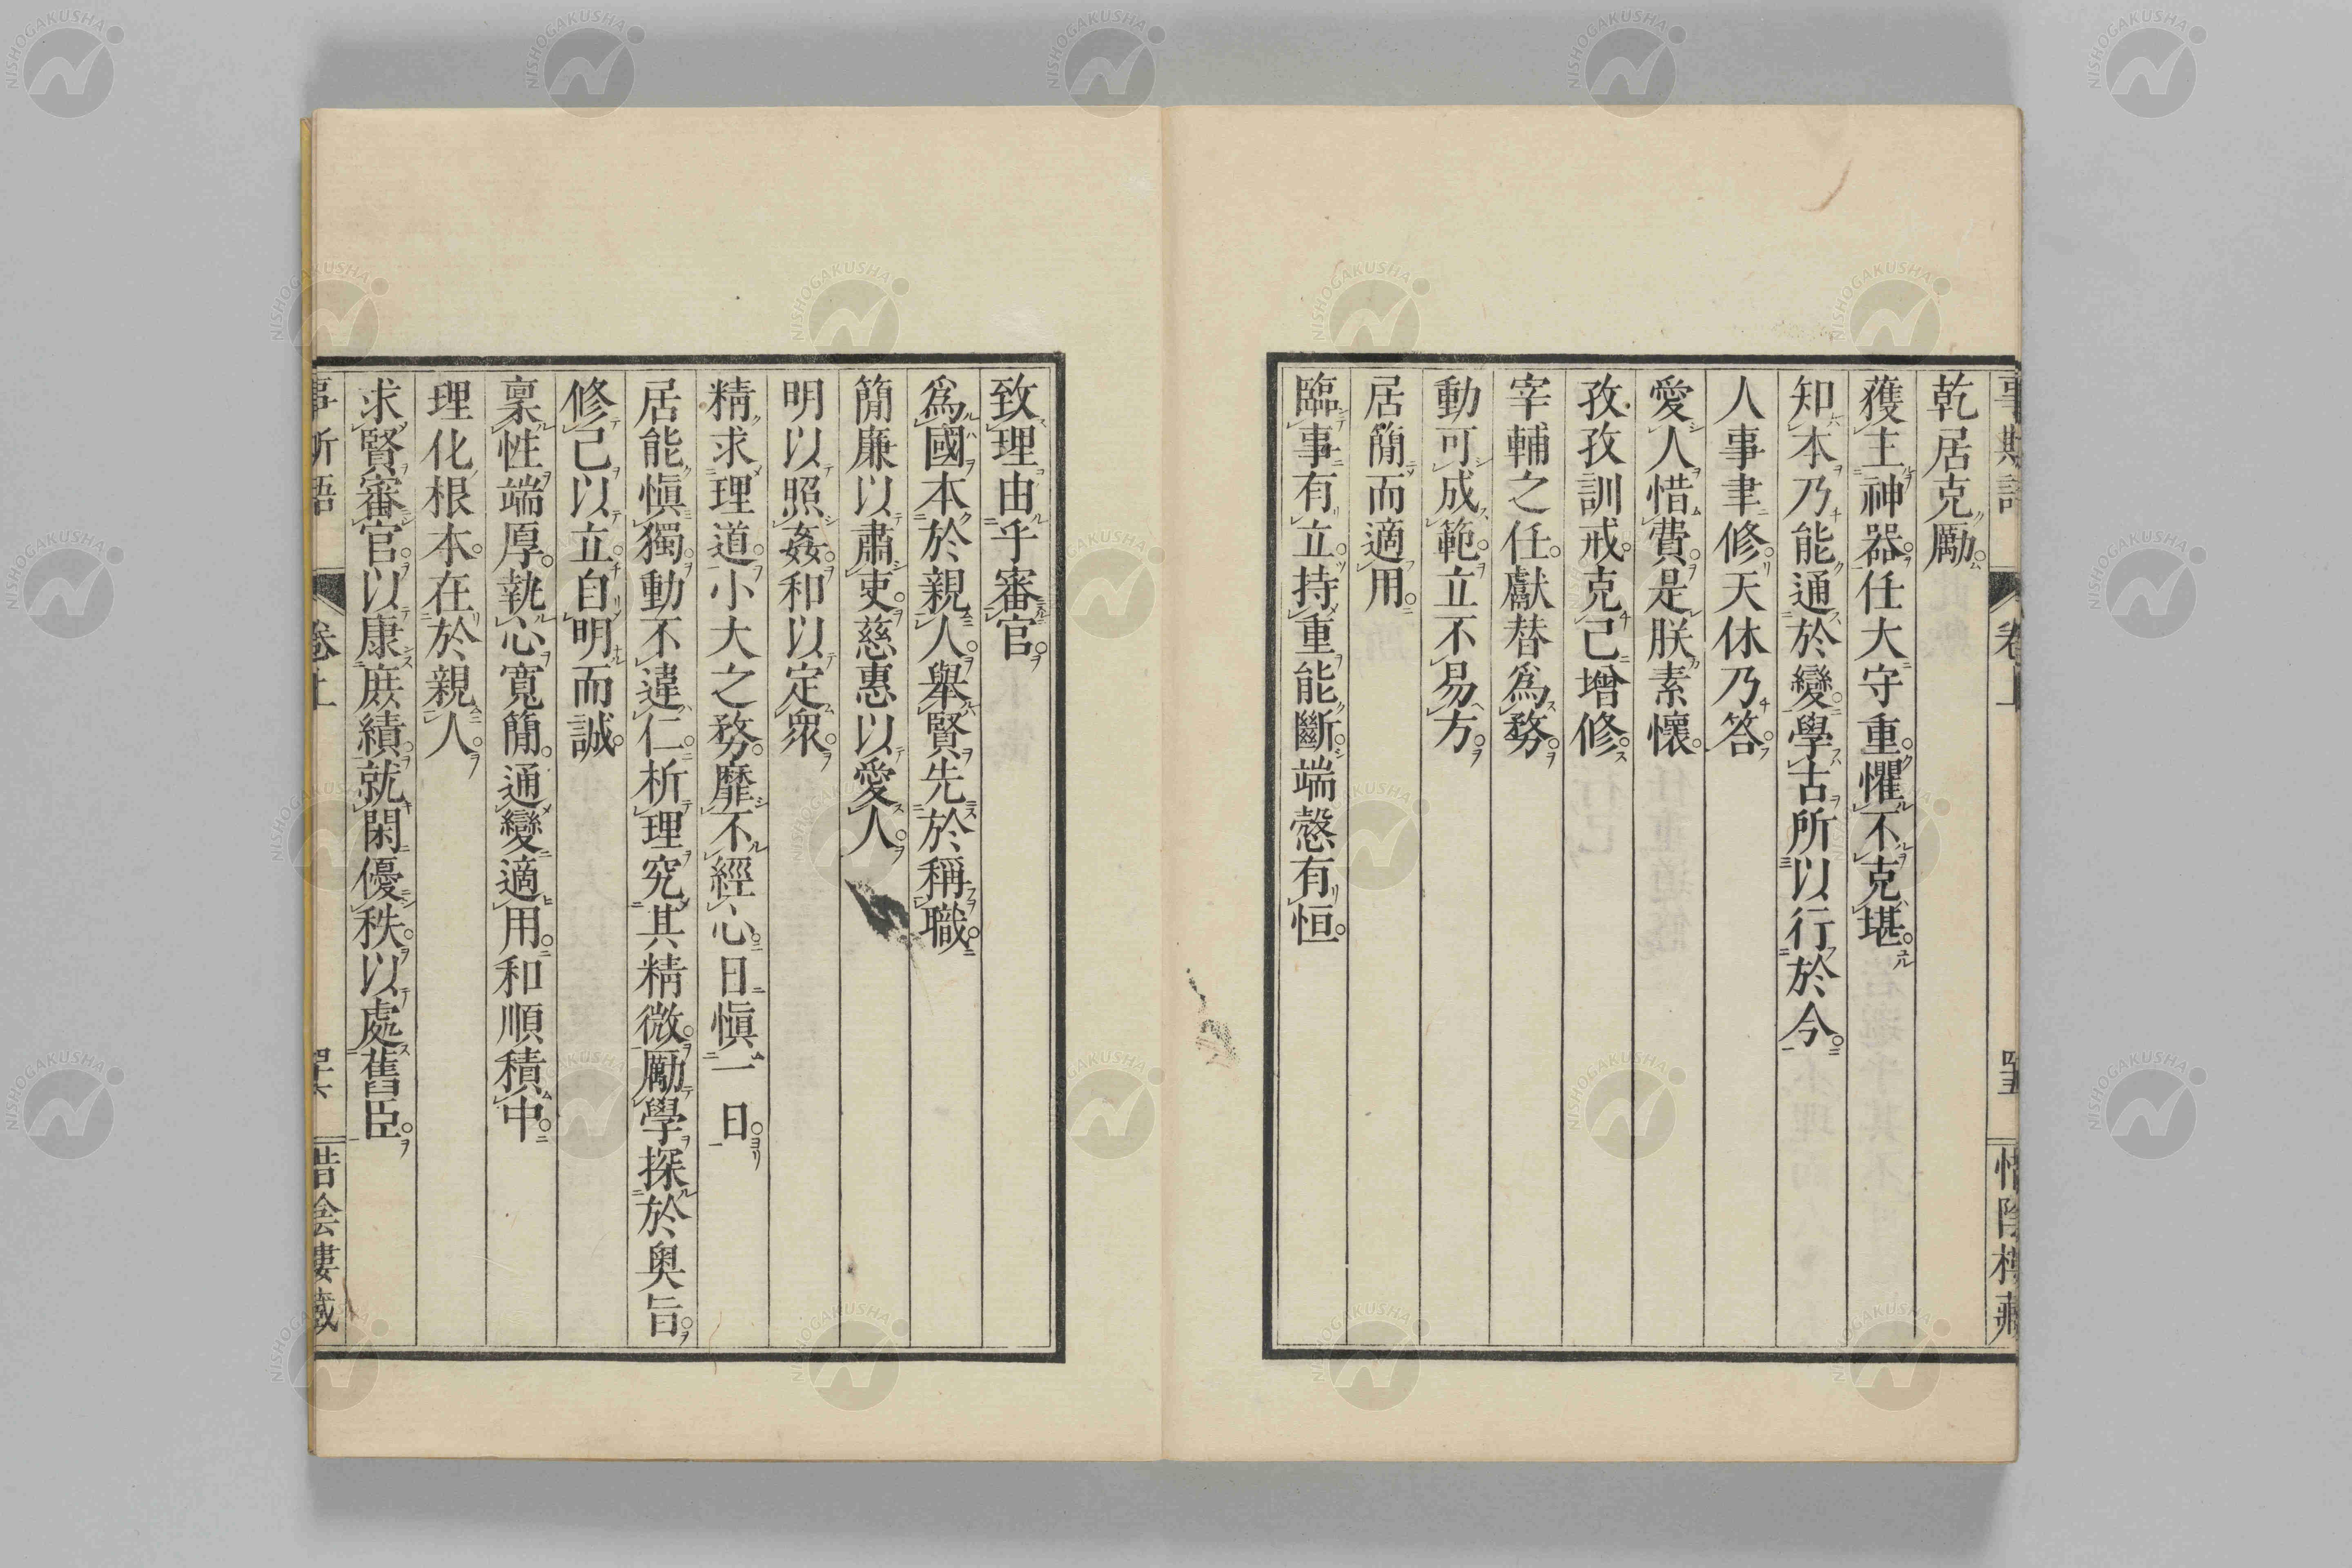 乾居克勵
獲主神器任大守重懼不克堪
知本乃能通於變學古所以行於今
人事聿修天休乃答
愛人惜費是朕素懷
孜孜訓戒克己增修
宰輔之任獻替爲務
動可成範立不易方
居簡而適用
臨事有立持重能斷端愨有恒
致理由乎審官
爲國本於親人舉賢先於稱職
簡廉以肅吏慈惠以愛人
明以照姦和以定衆
精求理道小大之務靡不經心日愼一日
居能愼獨動不違仁析理究其精微勵學探於奧旨
修己以立自明而誠
稟性端厚執心寬簡通變適用和順積中
理化根本在於親人
求賢審官以康庶績就閑優秩以處舊臣
NISHOGAKUSHA